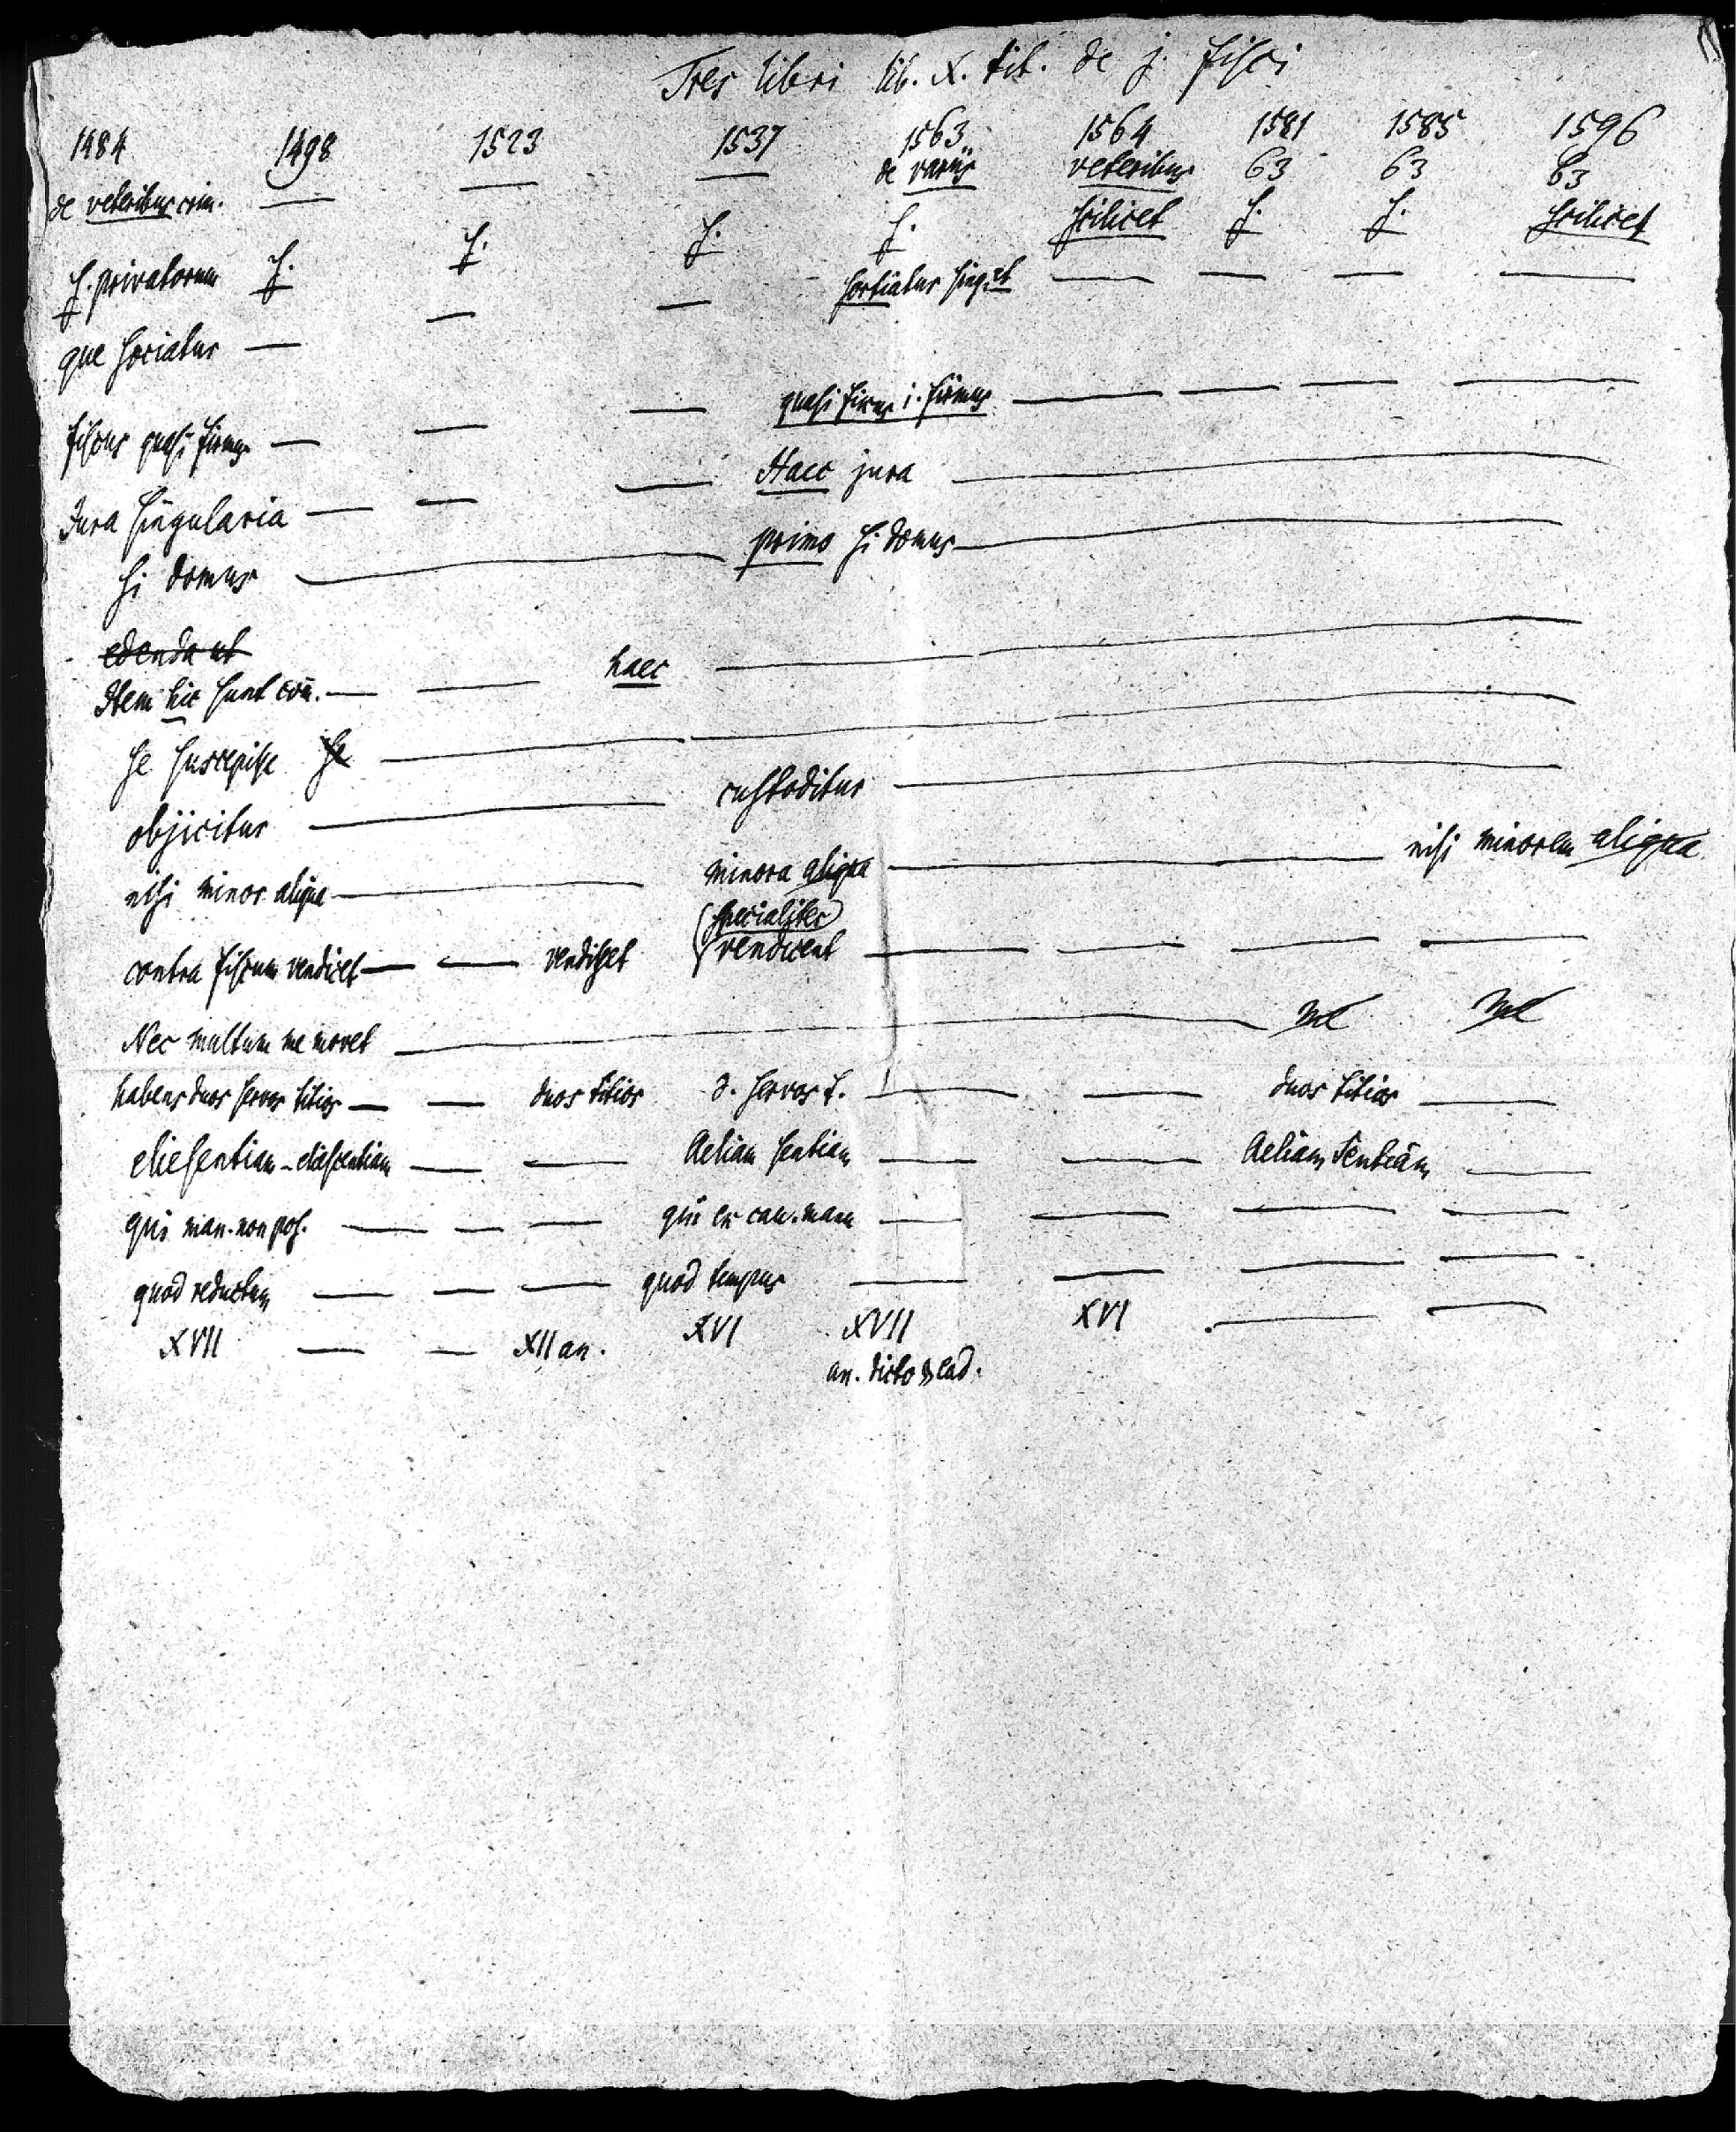 Tres libri lib. X. tit. de j. fisci
1484 1498 1523 1537 1563. 1564 1581 1585 1596
de veteribus crim. — — — de variis veteribus 63 63 63
s. privatorum s. s. s. s. scilicet s. s. scilicet
que sociatur — — — sortiatur sing. — — — —
fiscus quasi firmus — — — quasi ficus i. firmus — — — —
Jura singularia — — — Haec jura —
si domus — primo si domus —
edenda ut
Item hic sunt — — haec —
se suscepisse se —
objicitur — custoditur —
nisi minor aliqua — minora aliqua — nisi minorem aliqua
contra fiscum vendicet — — vendisset (specialiter) vendicent — — — —
Nec multum me movet — me me
habens duos servos titios — — duos titios d. servos t. — — duos titios —
eliesentiam - eliescentiam — — Aeliam sentiam — — Aeliam Sentiam —
qui man. non pos. — — — qui ex cau. man — — — —
quod reductum — — — quod tempus — — — —
XVII — — XII an. XVI XVII XVI — —
an. dicto